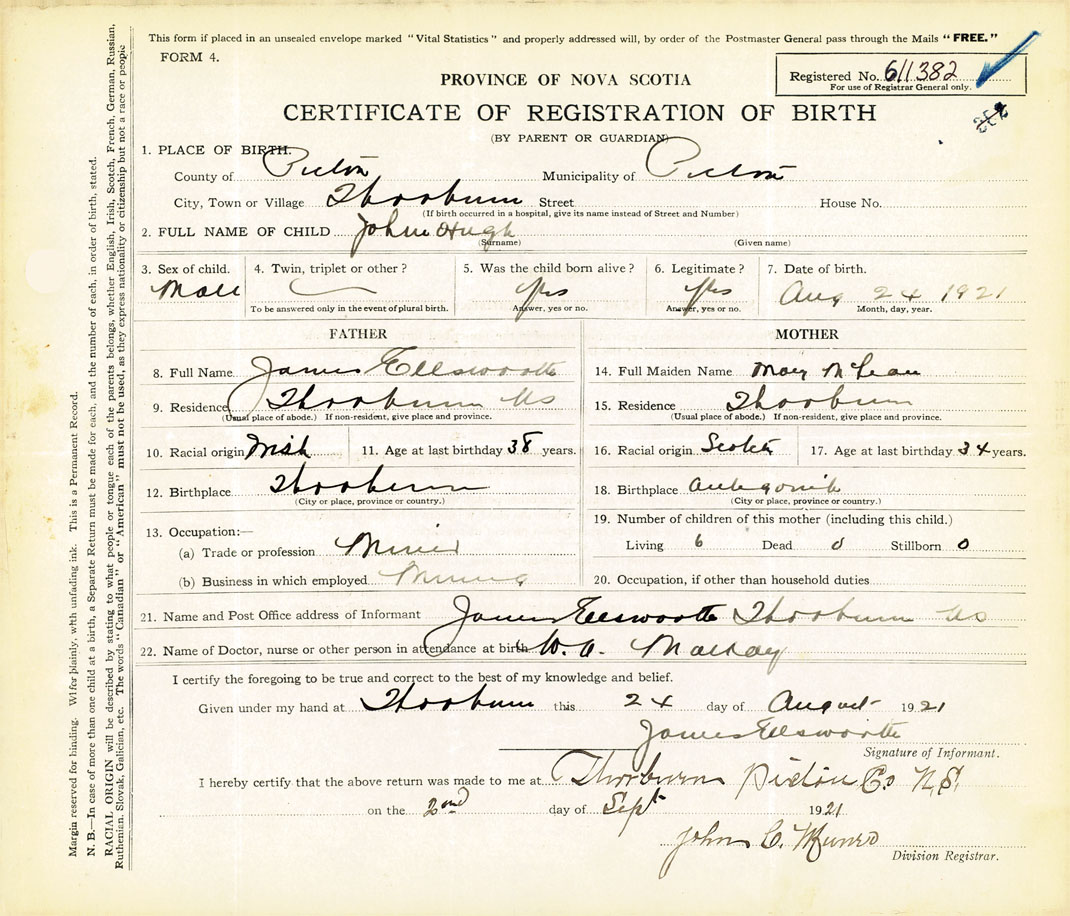 This form if placed in an unsealed envelope marked "Vital Statistics" and properly addressed will, by order of the Postmaster General pass through the Mails "FREE."
FORM 4.
Registered No. 611382
For use of Registrar General only.
PROVINCE OF NOVA SCOTIA
CERTIFICATE OF REGISTRATION OF BIRTH
(BY PARENT OR GUARDIAN)
1. PLACE OF BIRTH.
County of Pictou Municipality of Pictou
City, Town or Village Thorburn Street House No.
(If birth occurred in a hospital, give its name instead of Street and Number)
2. FULL NAME OF CHILD John Hugh
(Surname) (Given name)
3. Sex of child. 4. Twin, triplet or other? 5. Was the child born alive? 6. Legitimate? 7. Date of birth.
Male yes yes Aug 24 1921
To be answered only in the event of plural birth. Answer, yes or no. Answer, yes or no. Month, day, year.
FATHER MOTHER
8. Full Name James Ellsworth 14. Full Maiden Name Mary McLean
9. Residence Thorburn NS 15. Residence Thorburn
(Usual place of abode.) If non-resident, give place and province. (Usual place of abode.) If non-resident, give place and province.
10. Racial origin Irish 11. Age at last birthday 38 years. 16. Racial origin Scotch 17. Age at last birthday 34 years.
12. Birthplace Thorburn 18. Birthplace Antigonish
(City or place, province or country.) (City or place, province or country.)
13. Occupation:— 19. Number of children of this mother (including this child.)
(a) Trade or profession Miner Living 6 Dead 0 Stillborn 0
(b) Business in which employed Mining 20. Occupation, if other than household duties
21. Name and Post Office address of Informant James Ellsworth Thorburn NS
22. Name of Doctor, nurse or other person in attendance at birth W. A. MacKay
I certify the foregoing to be true and correct to the best of my knowledge and belief.
Given under my hand at Thorburn this 24 day of August 1921
James Ellsworth
Signature of Informant.
I hereby certify that the above return was made to me at Thorburn Pictou Co N.S.
on the 2nd day of Sept 1921
John C. Munro
Division Registrar.
Margin reserved for binding. Wifor plainly, with unfading ink. This is a Permanent Record.
N. B.—In case of more than one child at a birth, a Separate Return must be made for each, and the number of each, in order of birth, stated.
RACIAL ORIGIN will be described by stating to what people or tongue each of the parents belongs, whether English, Irish, Scotch, French, German, Russian,
Ruthenian, Slovak, Galician, etc. The words "Canadian" or "American" must not be used, as they express nationality or citizenship but not a race or people